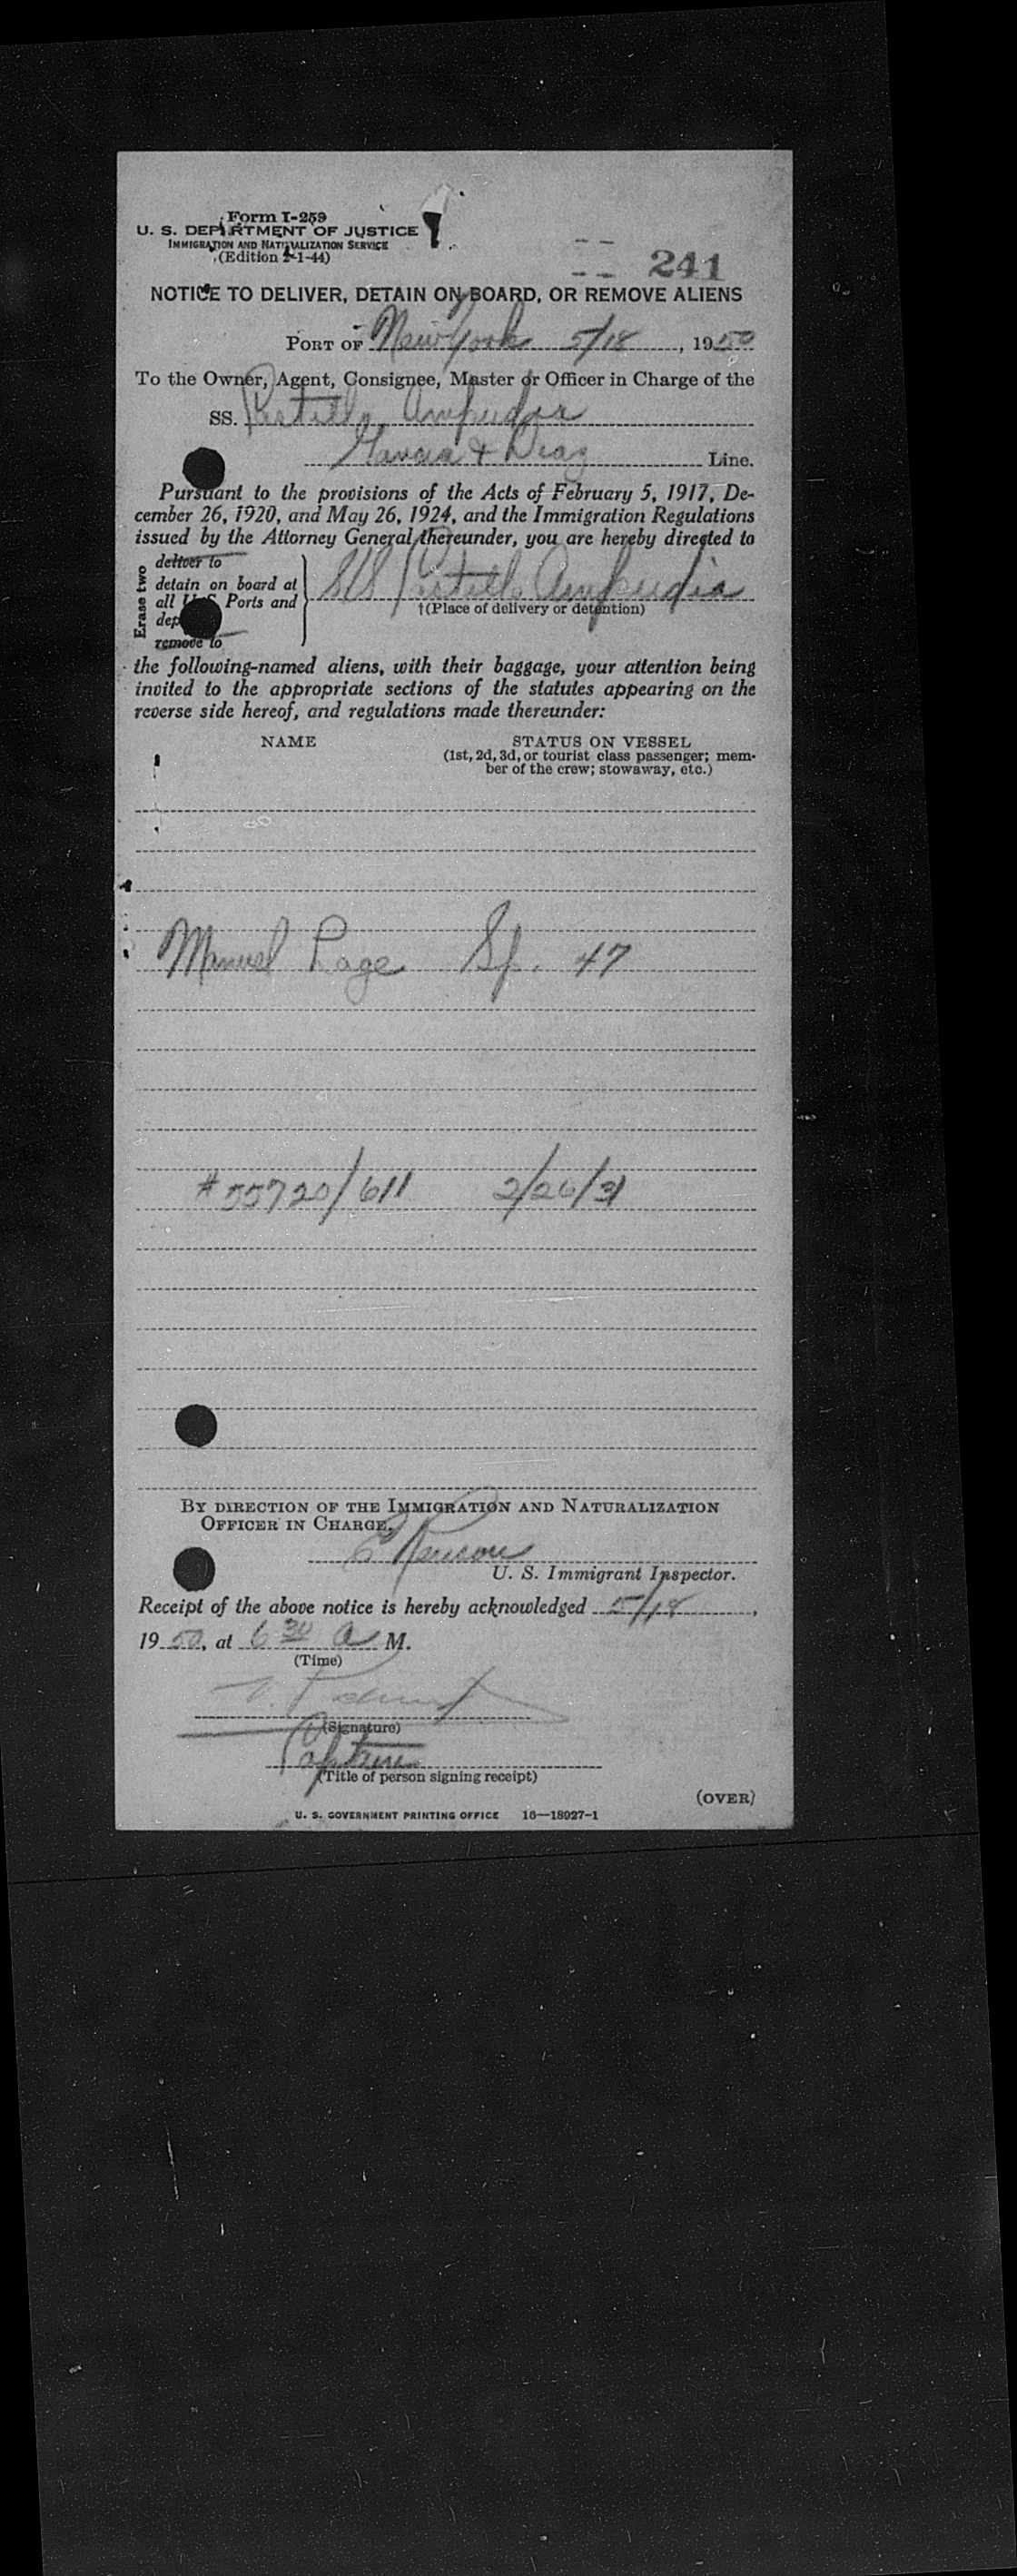 Form I-259
U. S. DEPARTMENT OF JUSTICE
IMMIGRATION AND NATURALIZATION SERVICE
(Edition 2-1-44)
241
NOTICE TO DELIVER, DETAIN ON BOARD, OR REMOVE ALIENS
PORT OF New York 5/18, 1950
To the Owner, Agent, Consignee, Master or Officer in Charge of the
SS. Castillo Ampudia
Garcia & Diaz Line.
Pursuant to the provisions of the Acts of February 5, 1917, De-
cember 26, 1920, and May 26, 1924, and the Immigration Regulations
issued by the Attorney General thereunder, you are hereby directed to
Erase two
deliver to
detain on board at
all U S Ports and
dep
remove to
SS Castillo Ampudia
†(Place of delivery or detention)
the following-named aliens, with their baggage, your attention being
invited to the appropriate sections of the statutes appearing on the
reverse side hereof, and regulations made thereunder:
NAME STATUS ON VESSEL
(1st, 2d, 3d, or tourist class passenger; mem-
ber of the crew; stowaway, etc.)
Manuel Lage Sp. 47
#55720/611 2/26/31
BY DIRECTION OF THE IMMIGRATION AND NATURALIZATION
OFFICER IN CHARGE,
U. S. Immigrant Inspector.
Receipt of the above notice is hereby acknowledged 5/18,
1950, at 6 30 A M.
(Time)
(Signature)
Captain
(Title of person signing receipt)
(OVER)
U. S. GOVERNMENT PRINTING OFFICE 16—18927-1